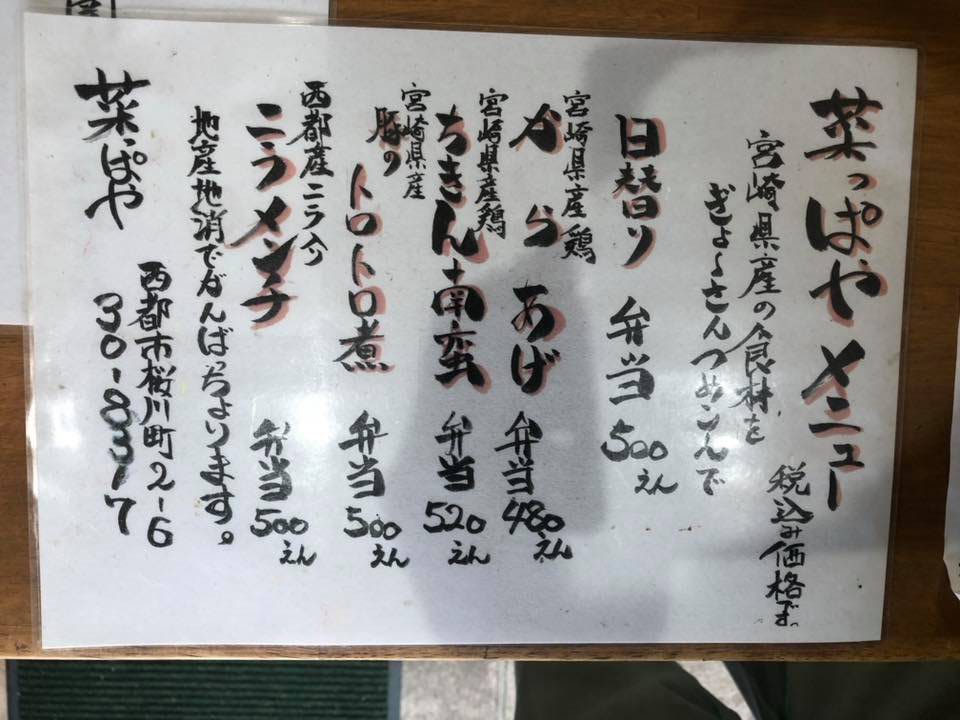 菜っぱや メニュー
税込み価格です。
宮崎県産の食材を
ぎょ〜さんつめこんで
日替り 弁当 500えん
宮崎県産鶏
からあげ 弁当 480えん
宮崎県産鶏
ちきん南蛮 弁当 520えん
宮崎県産
豚のトロトロ煮 弁当 500えん
西都産ニラ入り
ニラメンチ 弁当 500えん
地産地消でがんばっちょります。
菜っぱや 西都市桜川町2-6
30-8317